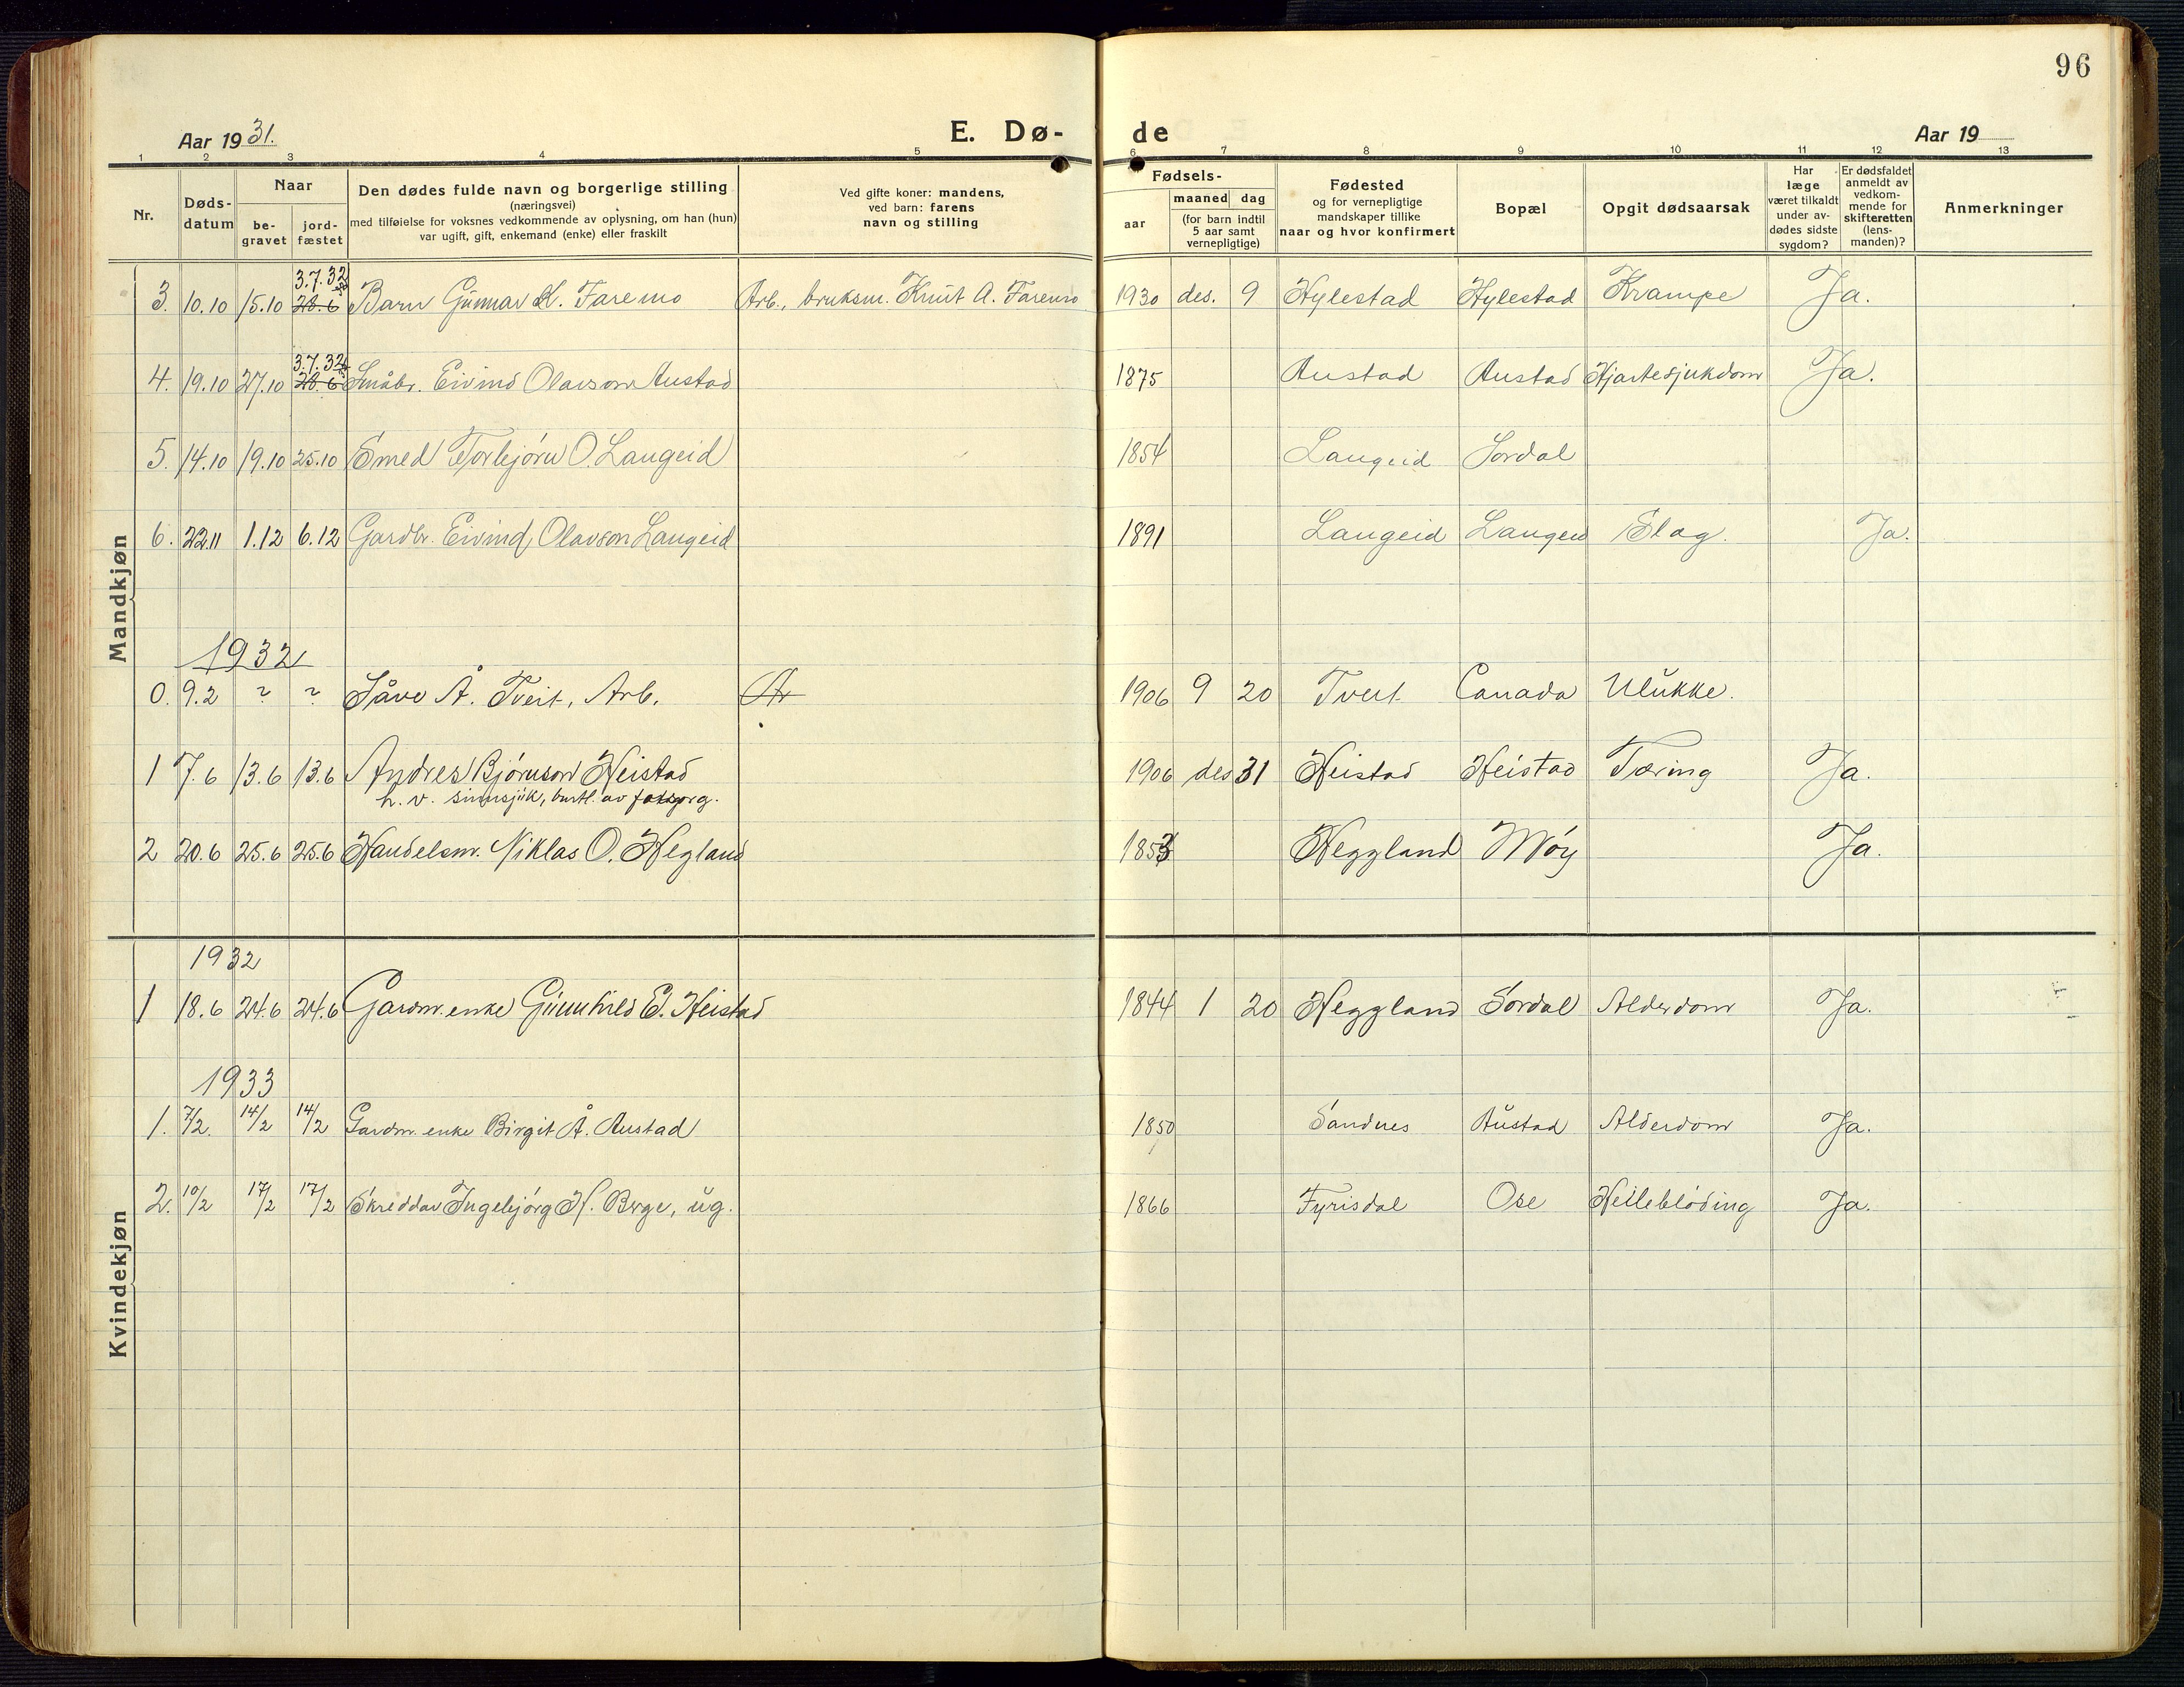 96
Aar 1931.
E. Dø-
de
Aar 19
1 2 3 4 5 6 7 8 9 10 11 12 13
Nr.
Døds-
datum
Naar
be-
gravet
jord-
fæstet
Den dødes fulde navn og borgerlige stilling
(næringsvei)
med tilføielse for voksnes vedkommende av oplysning, om han (hun)
var ugift, gift, enkemand (enke) eller fraskilt
Ved gifte koner: mandens,
ved barn: farens
navn og stilling
Fødsels-
aar
maaned dag
(for barn indtil
5 aar samt
vernepligtige)
Fødested
og for vernepligtige
mandskaper tillike
naar og hvor konfirmert
Bopæl
Opgit dødsaarsak
Har
læge
været tilkaldt
under av-
dødes sidste
sygdom?
Er dødsfaldet
anmeldt av
vedkom-
mende for
skifteretten
(lens-
manden)?
Anmerkninger
Mandkjøn
3.7.32
3. 10.10 15.10 28.6 Barn Gunnar K. Faremo Arb., bruksm. Knut A. Faremo 1930 des. 9 Hylestad Hylestad Krampe Ja.
3.7.32
4. 19.10 27.10 28.6 Småbr. Eivind Olavson Austad 1875 Austad Austad Hjartesjukdom Ja.
5. 14.10 19.10 25.10 Smed Torbjørn O. Langeid 1854 Langeid Sordal
6. 22.11 1.12 6.12 Gardbr. Eivind Olavson Langeid 1891 Langeid Langeid Slag. Ja.
1932
0. 9.2 ? ? Såve Å. Tveit, Arb. Ar 1906 9 20 Tveit Canada Ulukke.
1 7.6 13.6 13.6 Andres Bjørnson Heistad 1906 des 31 Heistad Heistad Tæring Ja.
h. v. sinnsjuk, burtl. av forsorg.
2 20.6 25.6 25.6 Handelsm. Niklas O. Hegland 1853 Heggland Møy Ja.
Kvindekjøn
1932
1 18.6 24.6 24.6 Gardm. enke Gunnhild E. Heistad 1844 1 20 Heggland Sordal Alderdom Ja.
1933
1. 7/2. 14/2 14/2 Gardm. enke Birgit Å. Austad 1850 Sandnes Austad Alderdom Ja.
2. 10/2 17/2 17/2 Skreddar Ingebjørg H. Berge, ug. 1866 Fyrisdal Ose Heilebløding Ja.